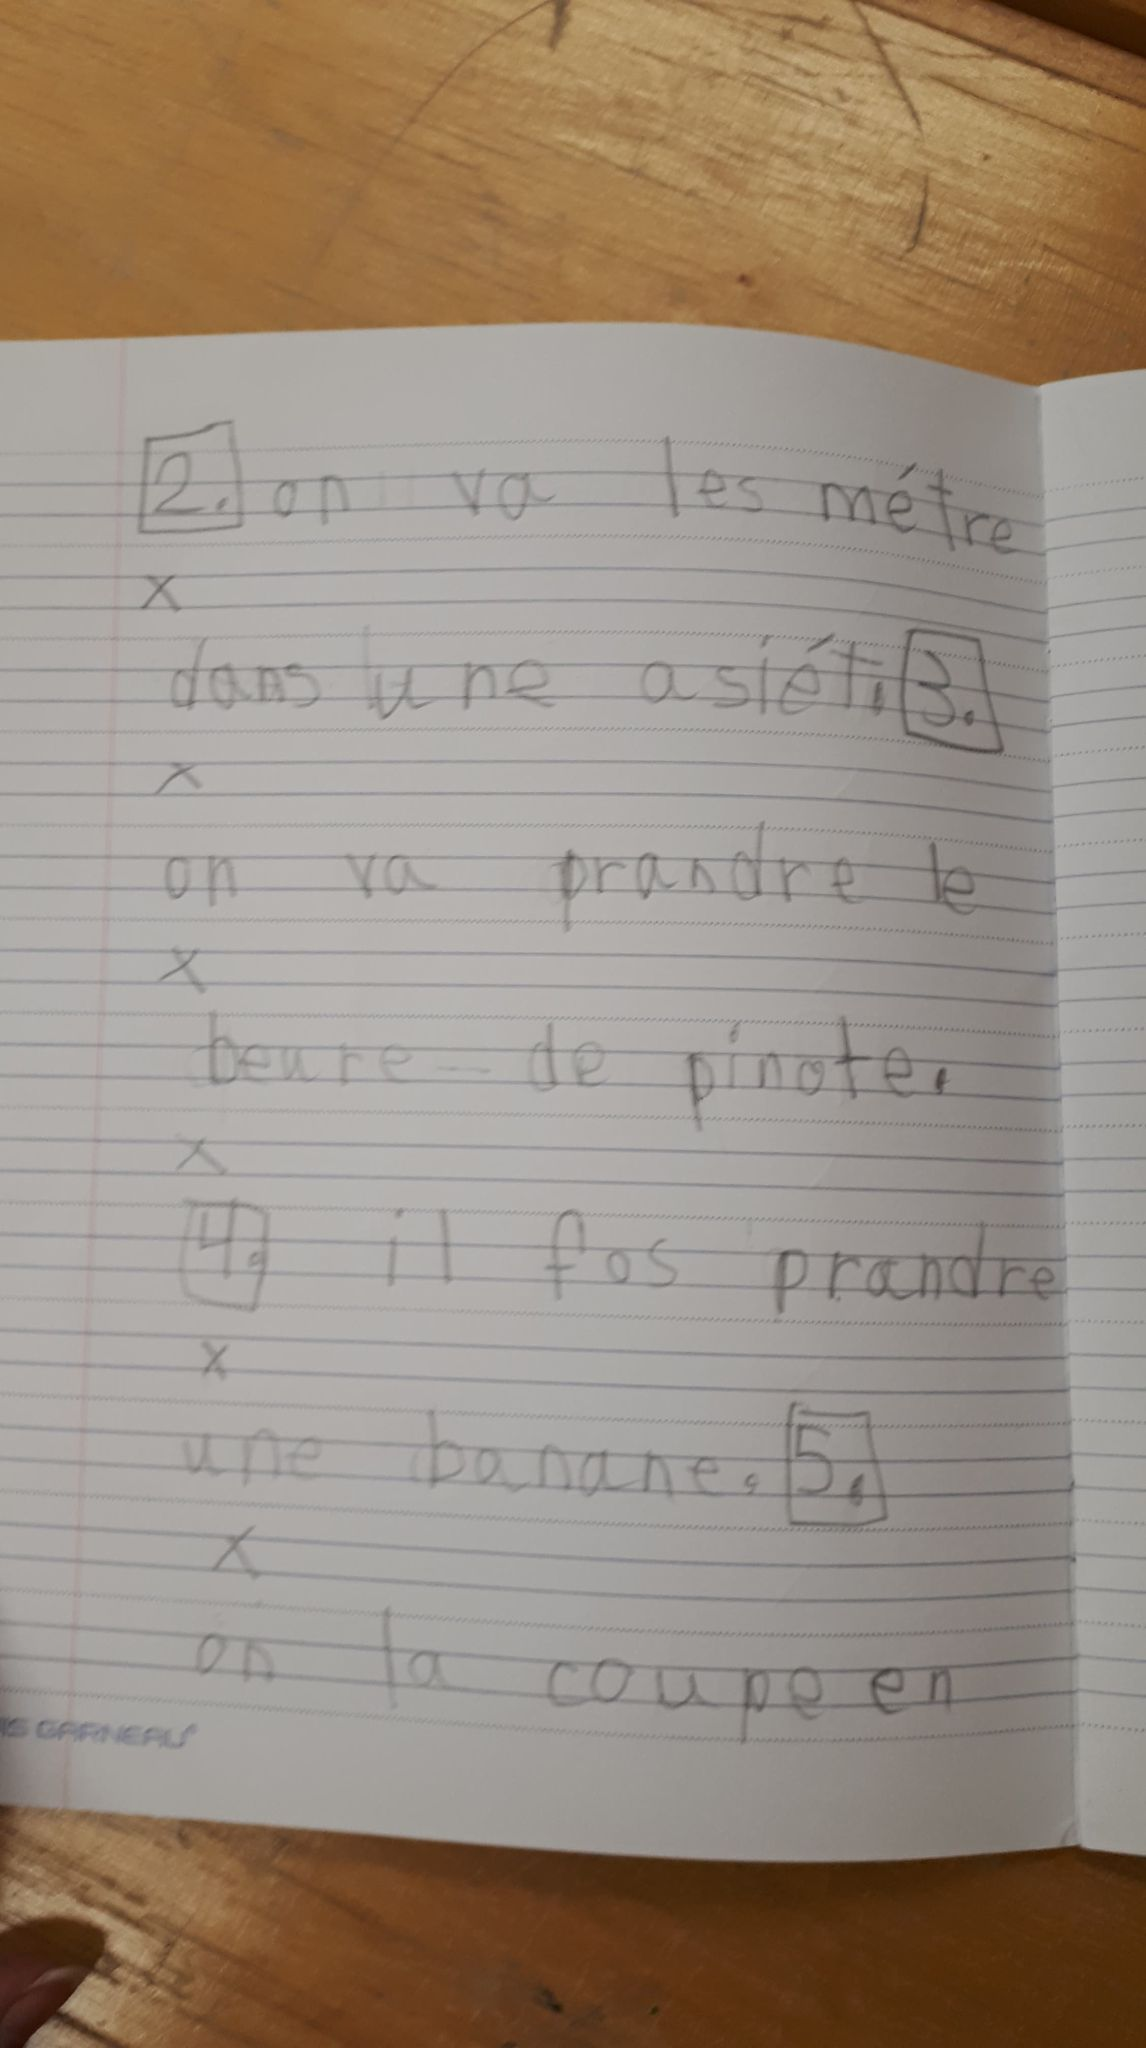 2. on va les métre
x
dans une asiét. 3.
x
on va prandre le
x
beure-de pinote.
x
4. il fos prandre
x
une banane. 5.
x
on la coupe en
IS GARNEAU